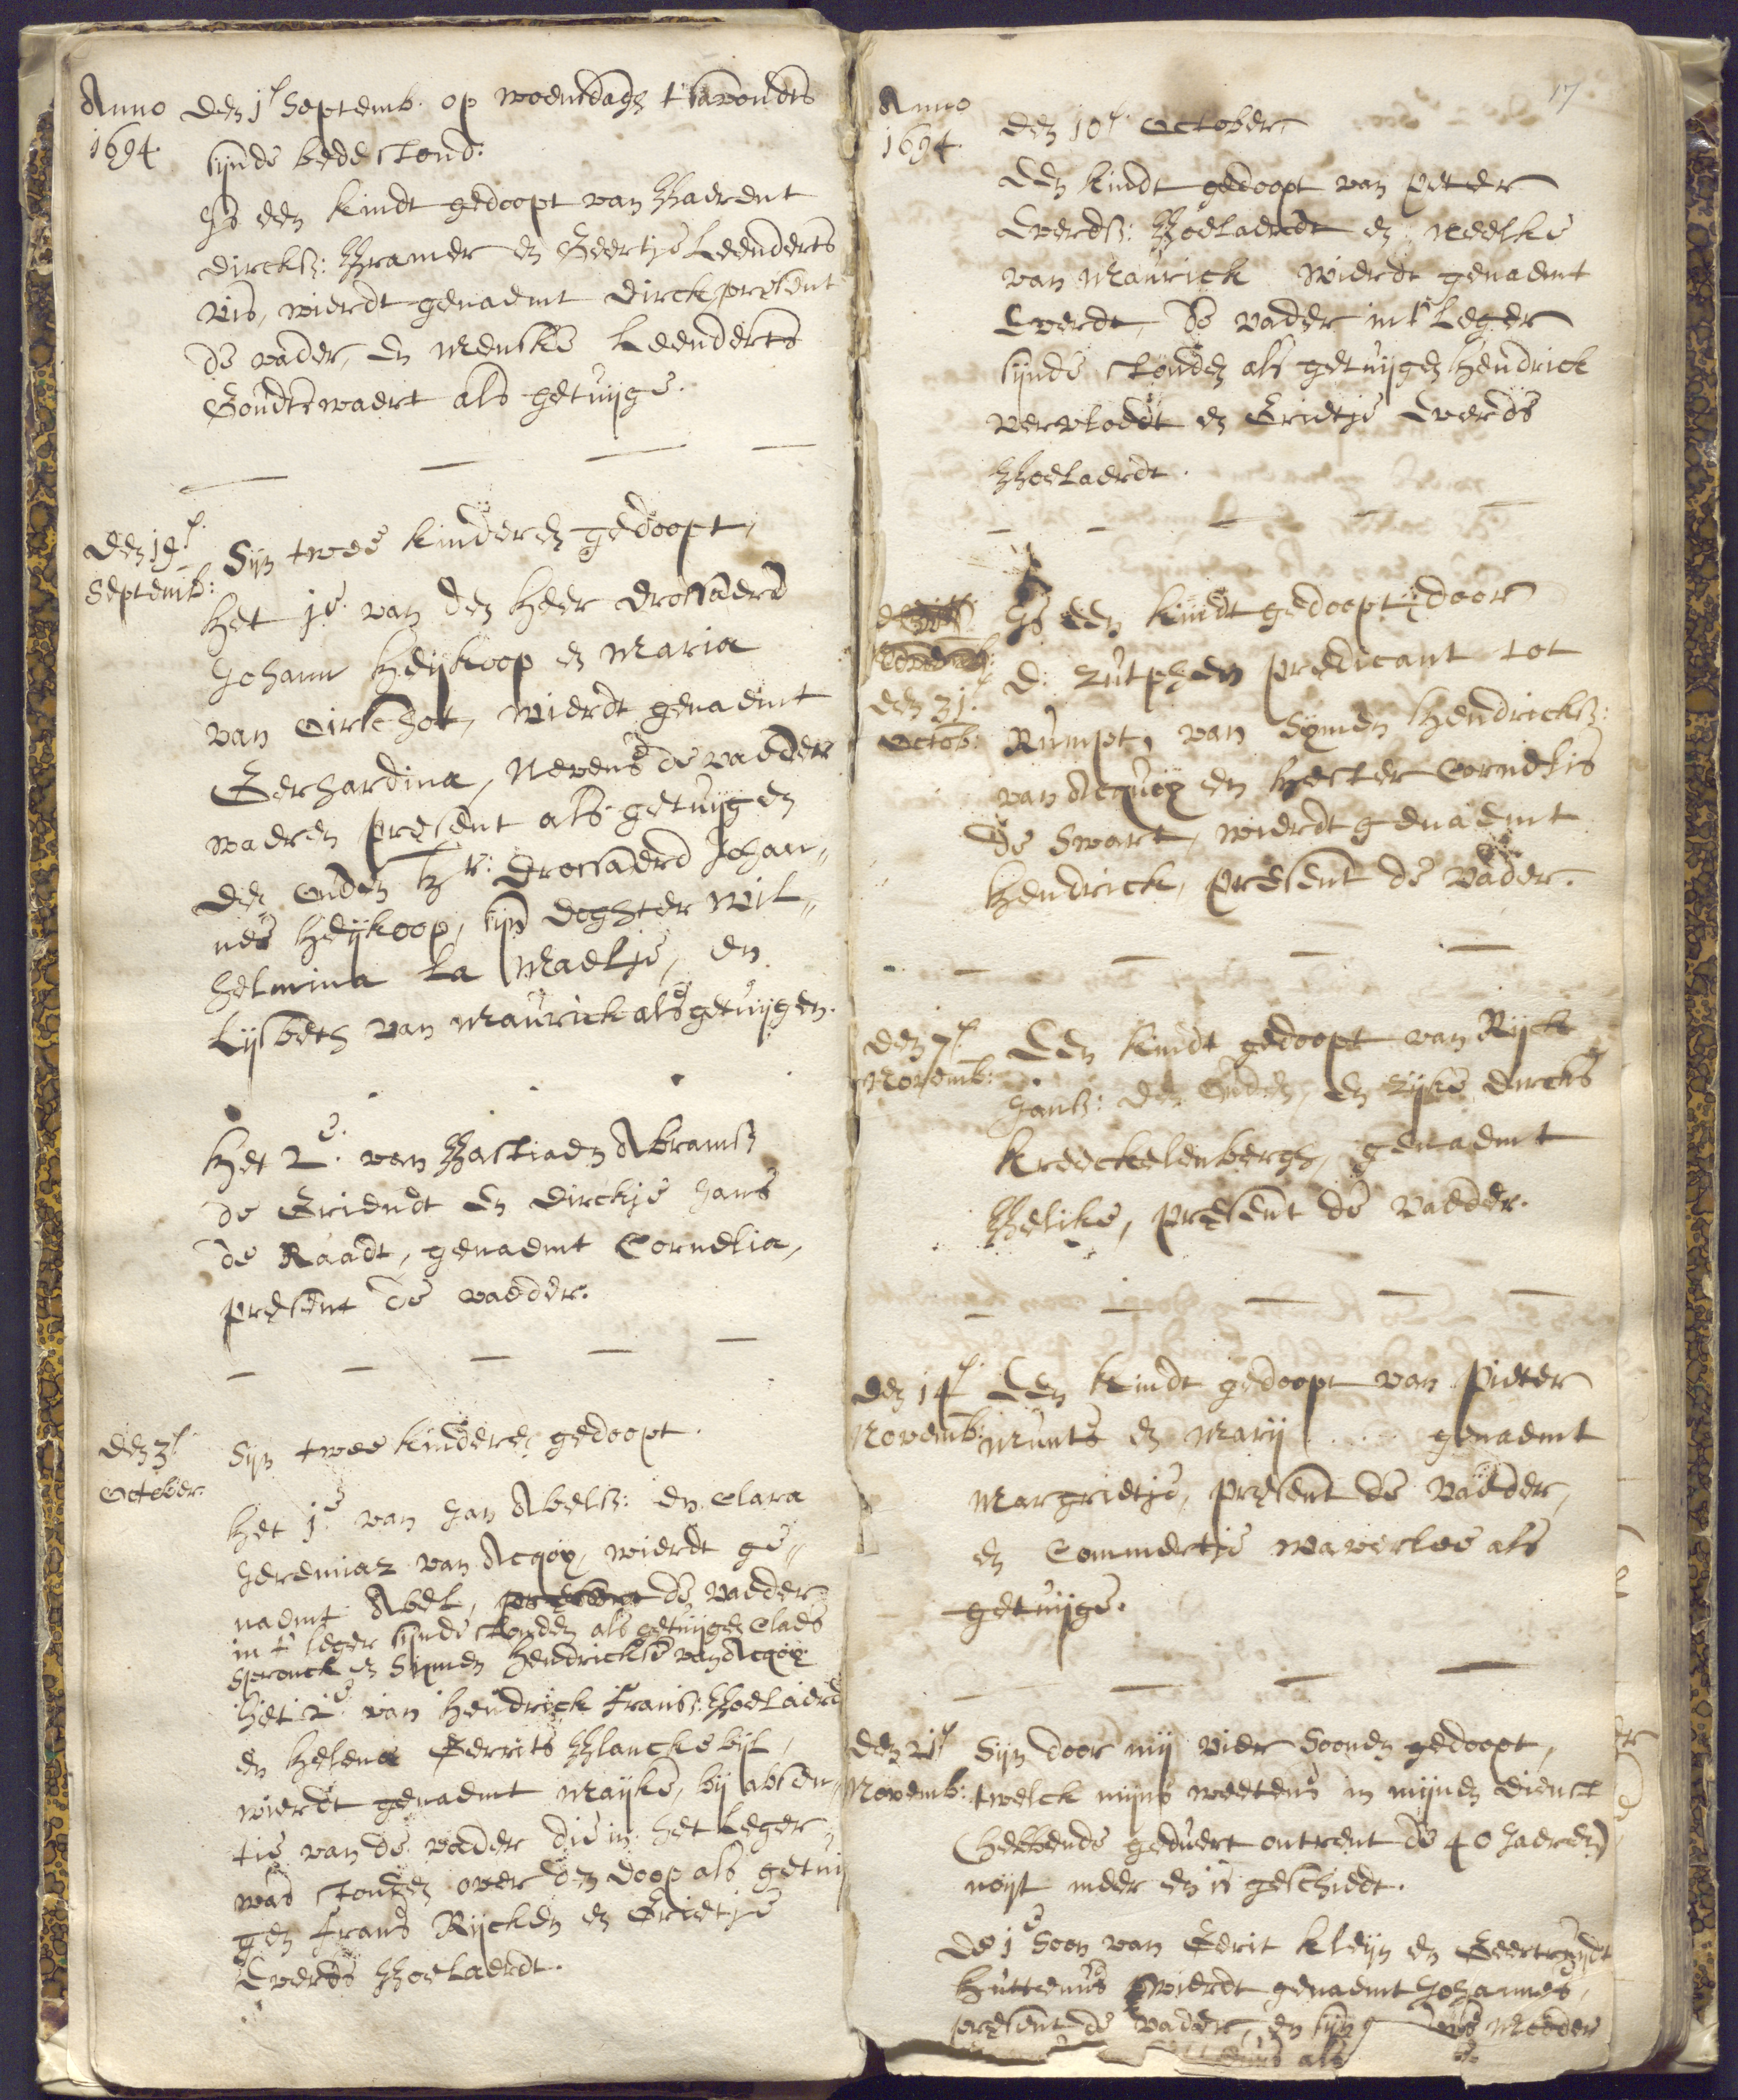 Anno 1694.
den 1e Septemb. op woensdagh t'savondts
sijnde bede stond:
Is een kindt gedoopt van Baerent
Dircks: Bramer en Geertje Leenderts
Vis, wierdt genaemt Dirck, present
de vader, en Menske Leenderts
Goudtswaert als getuijge.
den 19e Septemb:
Sijn twee kinderen gedoopt,
Het 1e van den Heer Drossaerd
Johann Heijkoop en Maria
van Oirschot, wierdt genaemt
Gerhardina, Nevens de vaeder
waeren present als getuijgen
den ouden Hr: Drossaerd Johan„
nes Heijkoop, sijn doghter Wil„
helmina La Maelje, en
Lijsbeth van Maurick als getuijgen.
Het 2e van Bastiaen Abrams
de Griendt en Dirckje Jans
de Raadt, genaemt Cornelia,
present de vaeder.
den 3e October.
Sijn twee kinderen gedoopt.
Het 1e van Jan Abels: en Clara
Jeremias van Acqoy, wierdt ge„
naemt Abel, present de vaeder
in 't leger sijnde stonden als getuijgen Claes
Spronck en Sijmen Hendrickse van Acqoy
Het 2e van Hendrick Frans: Boelaerd
en Helena Gerrits Blanckebijl,
wierdt genaemt Maijke, bij absen„
tie van de vader die in het Leger
was stonden over den doop als getuij
gen Frans Rijcken en Grietje
Everds Boelaerdt.
17
Anno 1694.
den 10e October
Een kindt gedoopt van Peter
Everds: Boelaerdt en Neelke
van Maurick wierdt genaemt
Everdt, de vader in 't Leger
sijnde stonden als getuijgen Hendrick
Vervloedt en Grietje Everds
Boelaerdt.
den 31e Octob:
Is een kindt gedoopt door
D: Zutphen predicant tot
Rumpt, van Symen Hendricks:
van Acquoy en Hester Cornelis
de Swart, wierdt genaemt
Hendrick, present de Vader.
den 7e Novemb:
Een kindt gedoopt van Rijck
Jans: den Ouden, en Sijke Dircks
Kreeckelenbergh, genaemt
Belike, present de Vaeder.
den 14e Novemb:
Een kindt gedoopt van Pieter
Munts en Marij .... genaemt
Margrietje, present de Vaeder,
en Commertje Waverloe als
getuijge.
den 21e Novemb:
Sijn door mij vier Soonen gedoopt,
twelck mijns weetens in mijnen dienst
(hebbende geduert ontrent de 40 Jaeren)
noijt meer en is geschiedt.
De 1e Soon van Gerit Kleijn en Geertruijdt
Huttenus wierdt genaemt Johannes,
present de Vader, en sijn Moeder
als